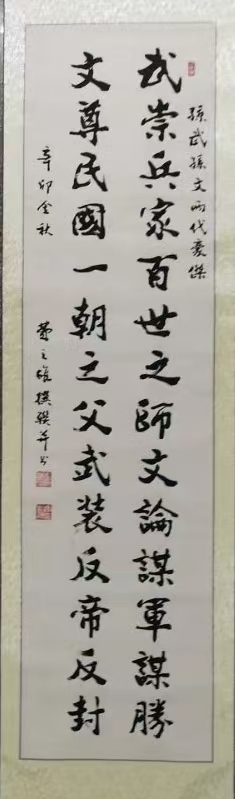 孫武孫文兩代豪傑
武崇兵家百世之師文論謀軍謀勝
文尊民國一朝之父武装反帝反封
辛卯金秋
之雄撰聯并书